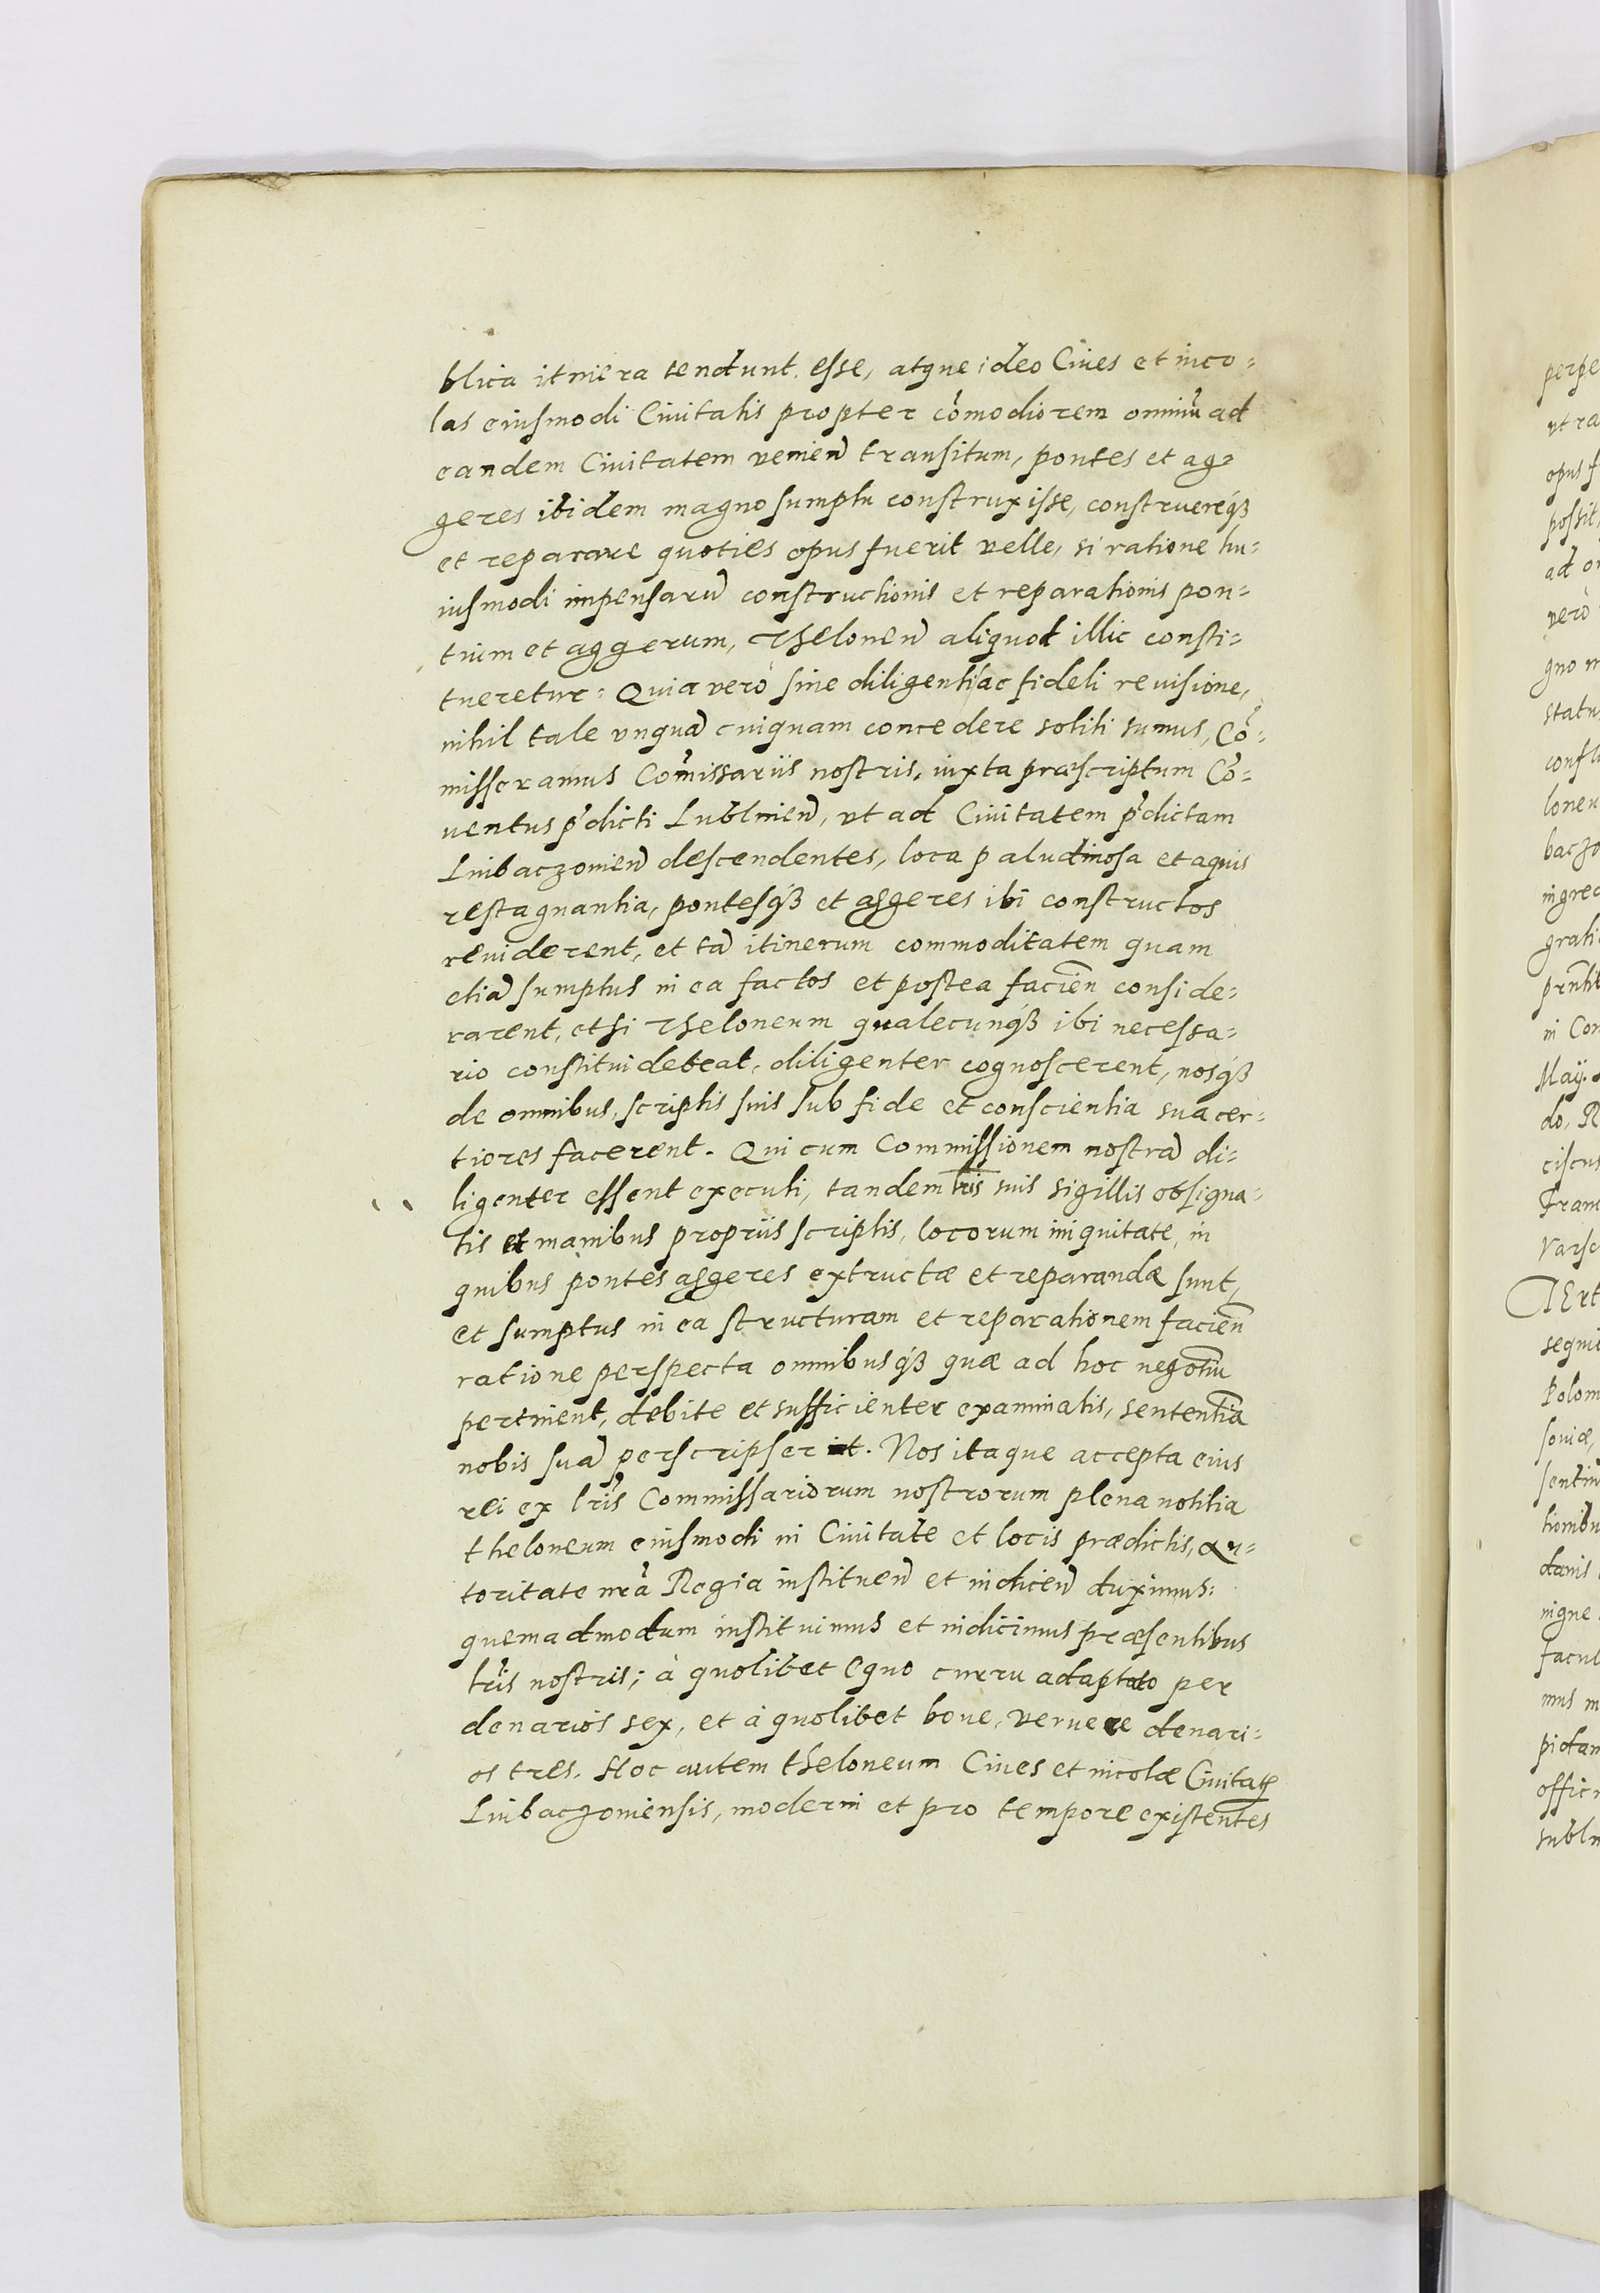 blica itinera tendunt. esse, atque ideo Ciues et inco-
las eiusmodi Ciuitatis propter cõmodiorem omniũ ad
eandem Ciuitatem venien̄ transitum, pontes et ag-
geres ibidem magno sumptu construxisse, construereq́ȝ
et reparare quoties opus fuerit velle, si ratione hu-
iusmodi impensarū constructionis et reparationis pon-
tium et aggerum, Theloneū aliquod illic consti-
tueretur: Quia verò sine diligenti ac fideli reuisione,
nihil tale vnquā cuiquam concedere soliti sumus, Cõ-
misseramus Cõmissariis nostris, iuxta præscriptum Cõ-
uentus p̃dicti Lublinen̄, vt ad Ciuitatem p̃dictam
Liubaczouien̄ descendentes, loca paludinosa et aquis
restagnantia, pontesq́ȝ et aggeres ibi constructos
reuiderent, et tā itinerum commoditatem quam
etiā sumptus in ea factos et postea facien̄ conside-
rarent, et si Theloneum qualecunq́ȝ ibi necessa-
rio constitui debeat, diligenter cognoscerent, nosq́ȝ
de omnibus, scriptis suis sub fide et conscientia sua cer-
tiores facerent. Qui cum Commissionem nostrā di-
ligenter essent executi, tandem lr̃is suis sigillis obsigna-
tis et manibus propriis scriptis, locorum iniquitate, in
quibus pontes aggeres extructæ et reparandæ sunt,
et sumptus in ea structuram et reparationem facien̄
ratione perspecta omnibusq́ȝ quæ ad hoc negotiũ
pertinent, debite et sufficienter examinatis, sententiã
nobis suā perscripserūt. Nos itaque accepta eius
rei ex lr̃is Commissariorum nostrorum plena notitia
theloneum eiusmodi in Ciuitate et locis prædictis, au-
toritate nr̃a Regia instituen̄ et indicen̄ duximus:
quemadmodum instituimus et indicimus præsentibus
lr̃is nostris; à quolibet equo curru adaptato per
denarios sex, et à quolibet boue, veruece denari-
os tres. Hoc autem theloneum Ciues et incolæ Ciuitatȩ
Liubaczouiensis, moderni et pro tempore existentes
perpe
vt ra
opus f
possit,
ad o
verò
gno m
statu
confl
loneu
baczo
ingre
grati
pr̃nti
in Co
May.
do, R
ciscus
Fran
Varsc
Polom
souiæ,
tionibu
nigne
facul
mus m